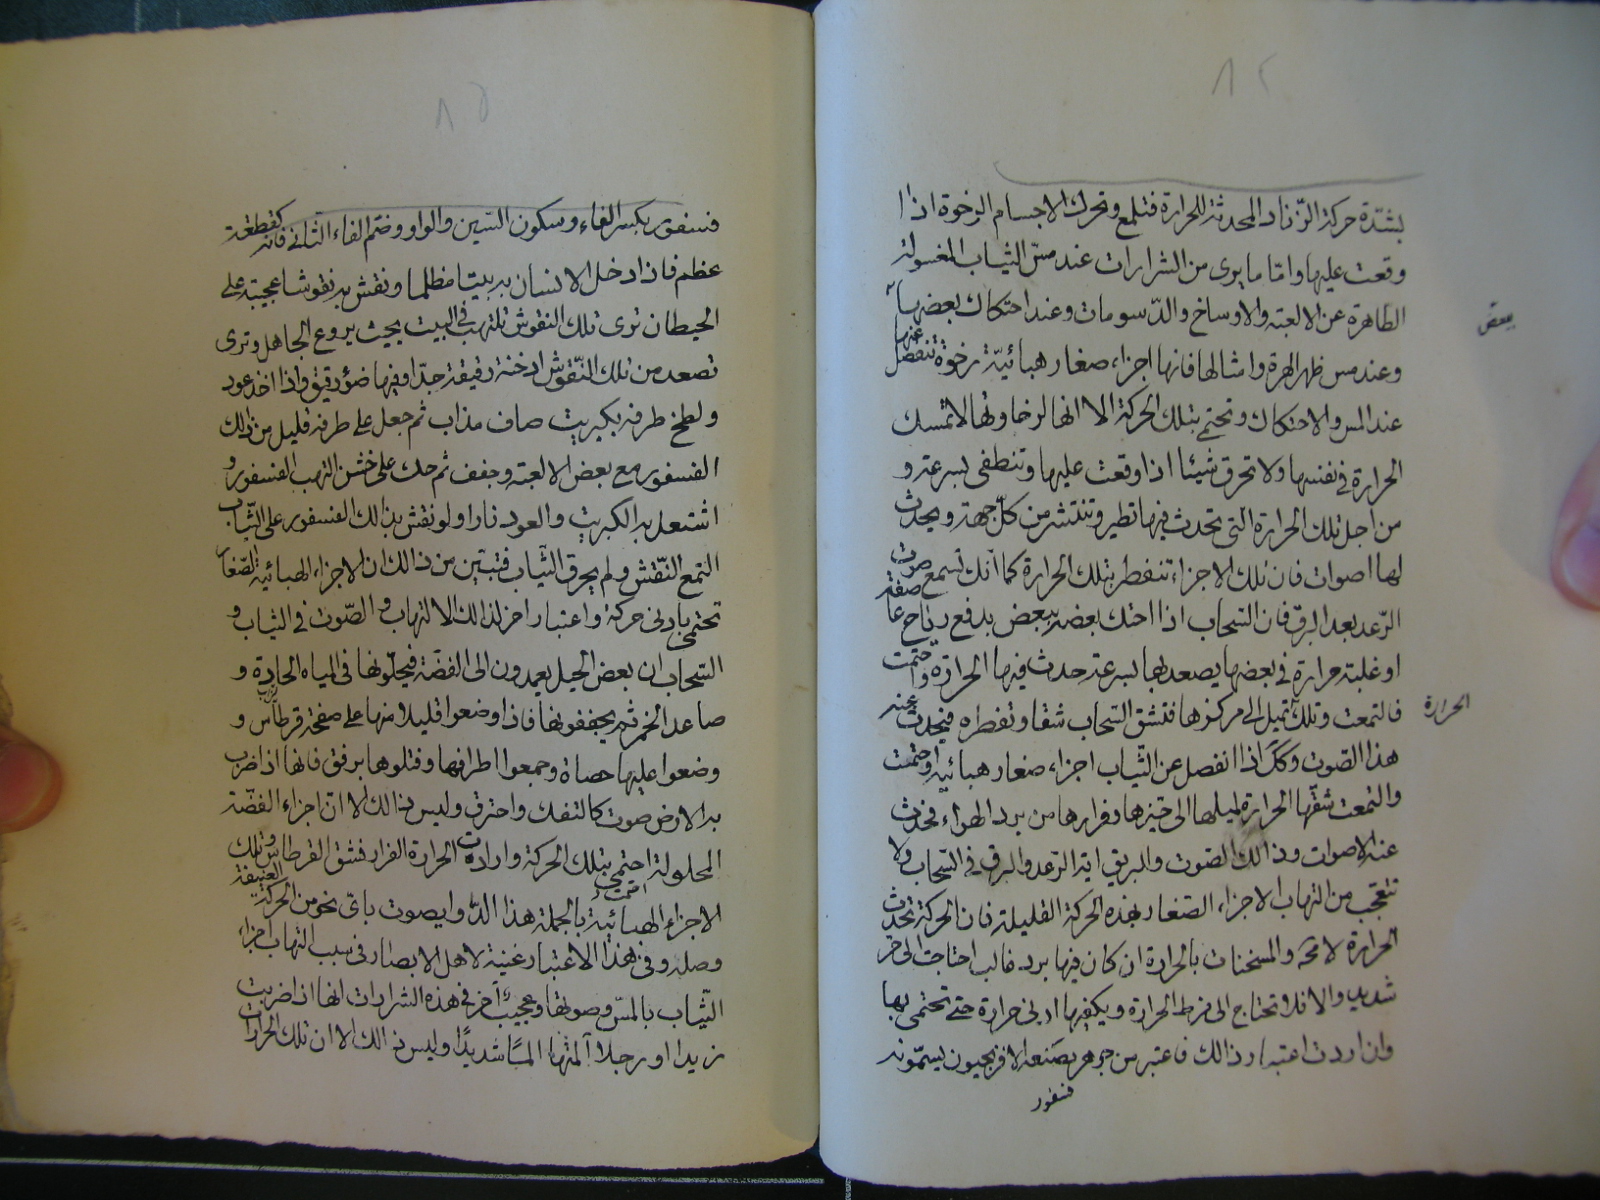 ٨٢
بشدّة حركة الزّناد المحدثة للحرارة فتلمع وتحرك الاجسام الرخوة اذا
وقعت عليها وامّا ما يرى من الشرارات عند مسّ الثياب المغسولة
الطاهرة عن الالعبة والاوساخ والدّسومات وعند احتكاك بعضها
ببعض
وعند مس ظهر الهرة وامثالها فانها اجزاء صغار هبائيّة رخوة تنفصل عنها
عند المس والاحتكاك وتحتمي بتلك الحركة الا انها لرخاوتها لا تمسك
الحرارة في نفسها ولا تحرق شيئا اذا وقعت عليها وتنطفى بسرعة و
من اجل تلك الحرارة التى تحدث فيها تطير وتنتشر من كلّ جهة ويحدث
لها اصوات فان تلك الاجزاء تنفطر بتلك الحرارة كما انّك تسمع صوت
الرّعد بعد البرق فان السّحاب اذا احتك بعضه ببعض بدفع رياح عاصفة
او غلبة حرارة في بعضها يصعد بها بسرعة حدث فيها الحرارة واحتمت
فالتمعت وتلك تميل الى مركزها فتشق السّحاب شقا وتفطره فيحدث عند
الحرارة
هذا الصوت وكك اذا انفصل عن الثّياب اجزاء صغار هبائيه واحتمت
والتمعت شقّها الحرارة لميلها الى حيّزها وفرارها من برد الهواء فحدث
عنه الاصوات وذالك الصّوت والبريق اية الرّعد والبرق في السّحاب ولا
تتعجّب من التهاب الاجزاء الصّغار بهذه الحركة القليلة فان الحركة تحدث
الحرارة لا محة والمسخنات بالحرارة ان كان فيها برد غالب احتاجت الى حر
شديد والا فلا تحتاج الى فرط الحرارة ويكفيها ادنى حرارة حتى تحتمى بها
وان اردت اعتبار ذالك فاعتبر من جوهر يصنعه الافرنجيون يسمّونه
فسفور
٨٥
فسفور بكسر الفاء وسكون السّين والواو وضم الفاء الثاني فانه كقطعة
عظم فاذا دخل الانسان به بيتا مظلما ونقش به نقوشا عجيبة على
الحيطان ترى تلك النقوش تلتهب في البيت بحيث يروع الجاهل وترى
تصعد من تلك النّقوش ادخنة رقيقة جدّا وفيها ضؤ رقيق واذا اخذ عود
ولطخ طرفه بكبريت صاف مذاب ثم جعل على طرفه قليل من ذالك
الفسفور مع بعض الالعبة وجفف ثم حك على خشن التهب الفسفور و
اشتعل به الكبريت والعود نارا ولو نقش بذالك الفسفور على الثّياب
التمع النّقش ولم يحرق الثّياب فتبيّن من ذالك ان الاجزاء الهبائية الصّغار
تحتمي بادنى حركة واعتبار اخر لذالك الالتهاب والصّوت في الثياب و
السّحاب ان بعض الحيل يعمدون الى الفضّة فيحلّونها في المياه الحادة و
صاعد الخمر ثم يجففونها فاذا وضعوا قليلا منها على صفحة قرطاس و
وضعوا عليها حصاة وجمعوا اطرافها وفتلوها برفق فانها اذا ضرب
به الارض صوت كالتفك واحترق وليس ذالك الا انّ اجزاء الفضّة
المحلولة احتمى بتلك الحركة وارادت الحرارة الفرار فشق القرطاس وتلك
الاجزاء الهبائية بالجملة هذا الدّواء يصوت باىّ نحو من الحركة العنيفة
وصله وفي هذا الاعتبار غنية لاهل الابصار في سبب التهاب اجزاء
الثّياب بالمسّ وصوتها وعجيب آخر في هذه الشرارات انها اذا ضربت
زيدا او رجلا آلمتها المًا شديدًا وليس ذالك الا ان تلك الحرارات